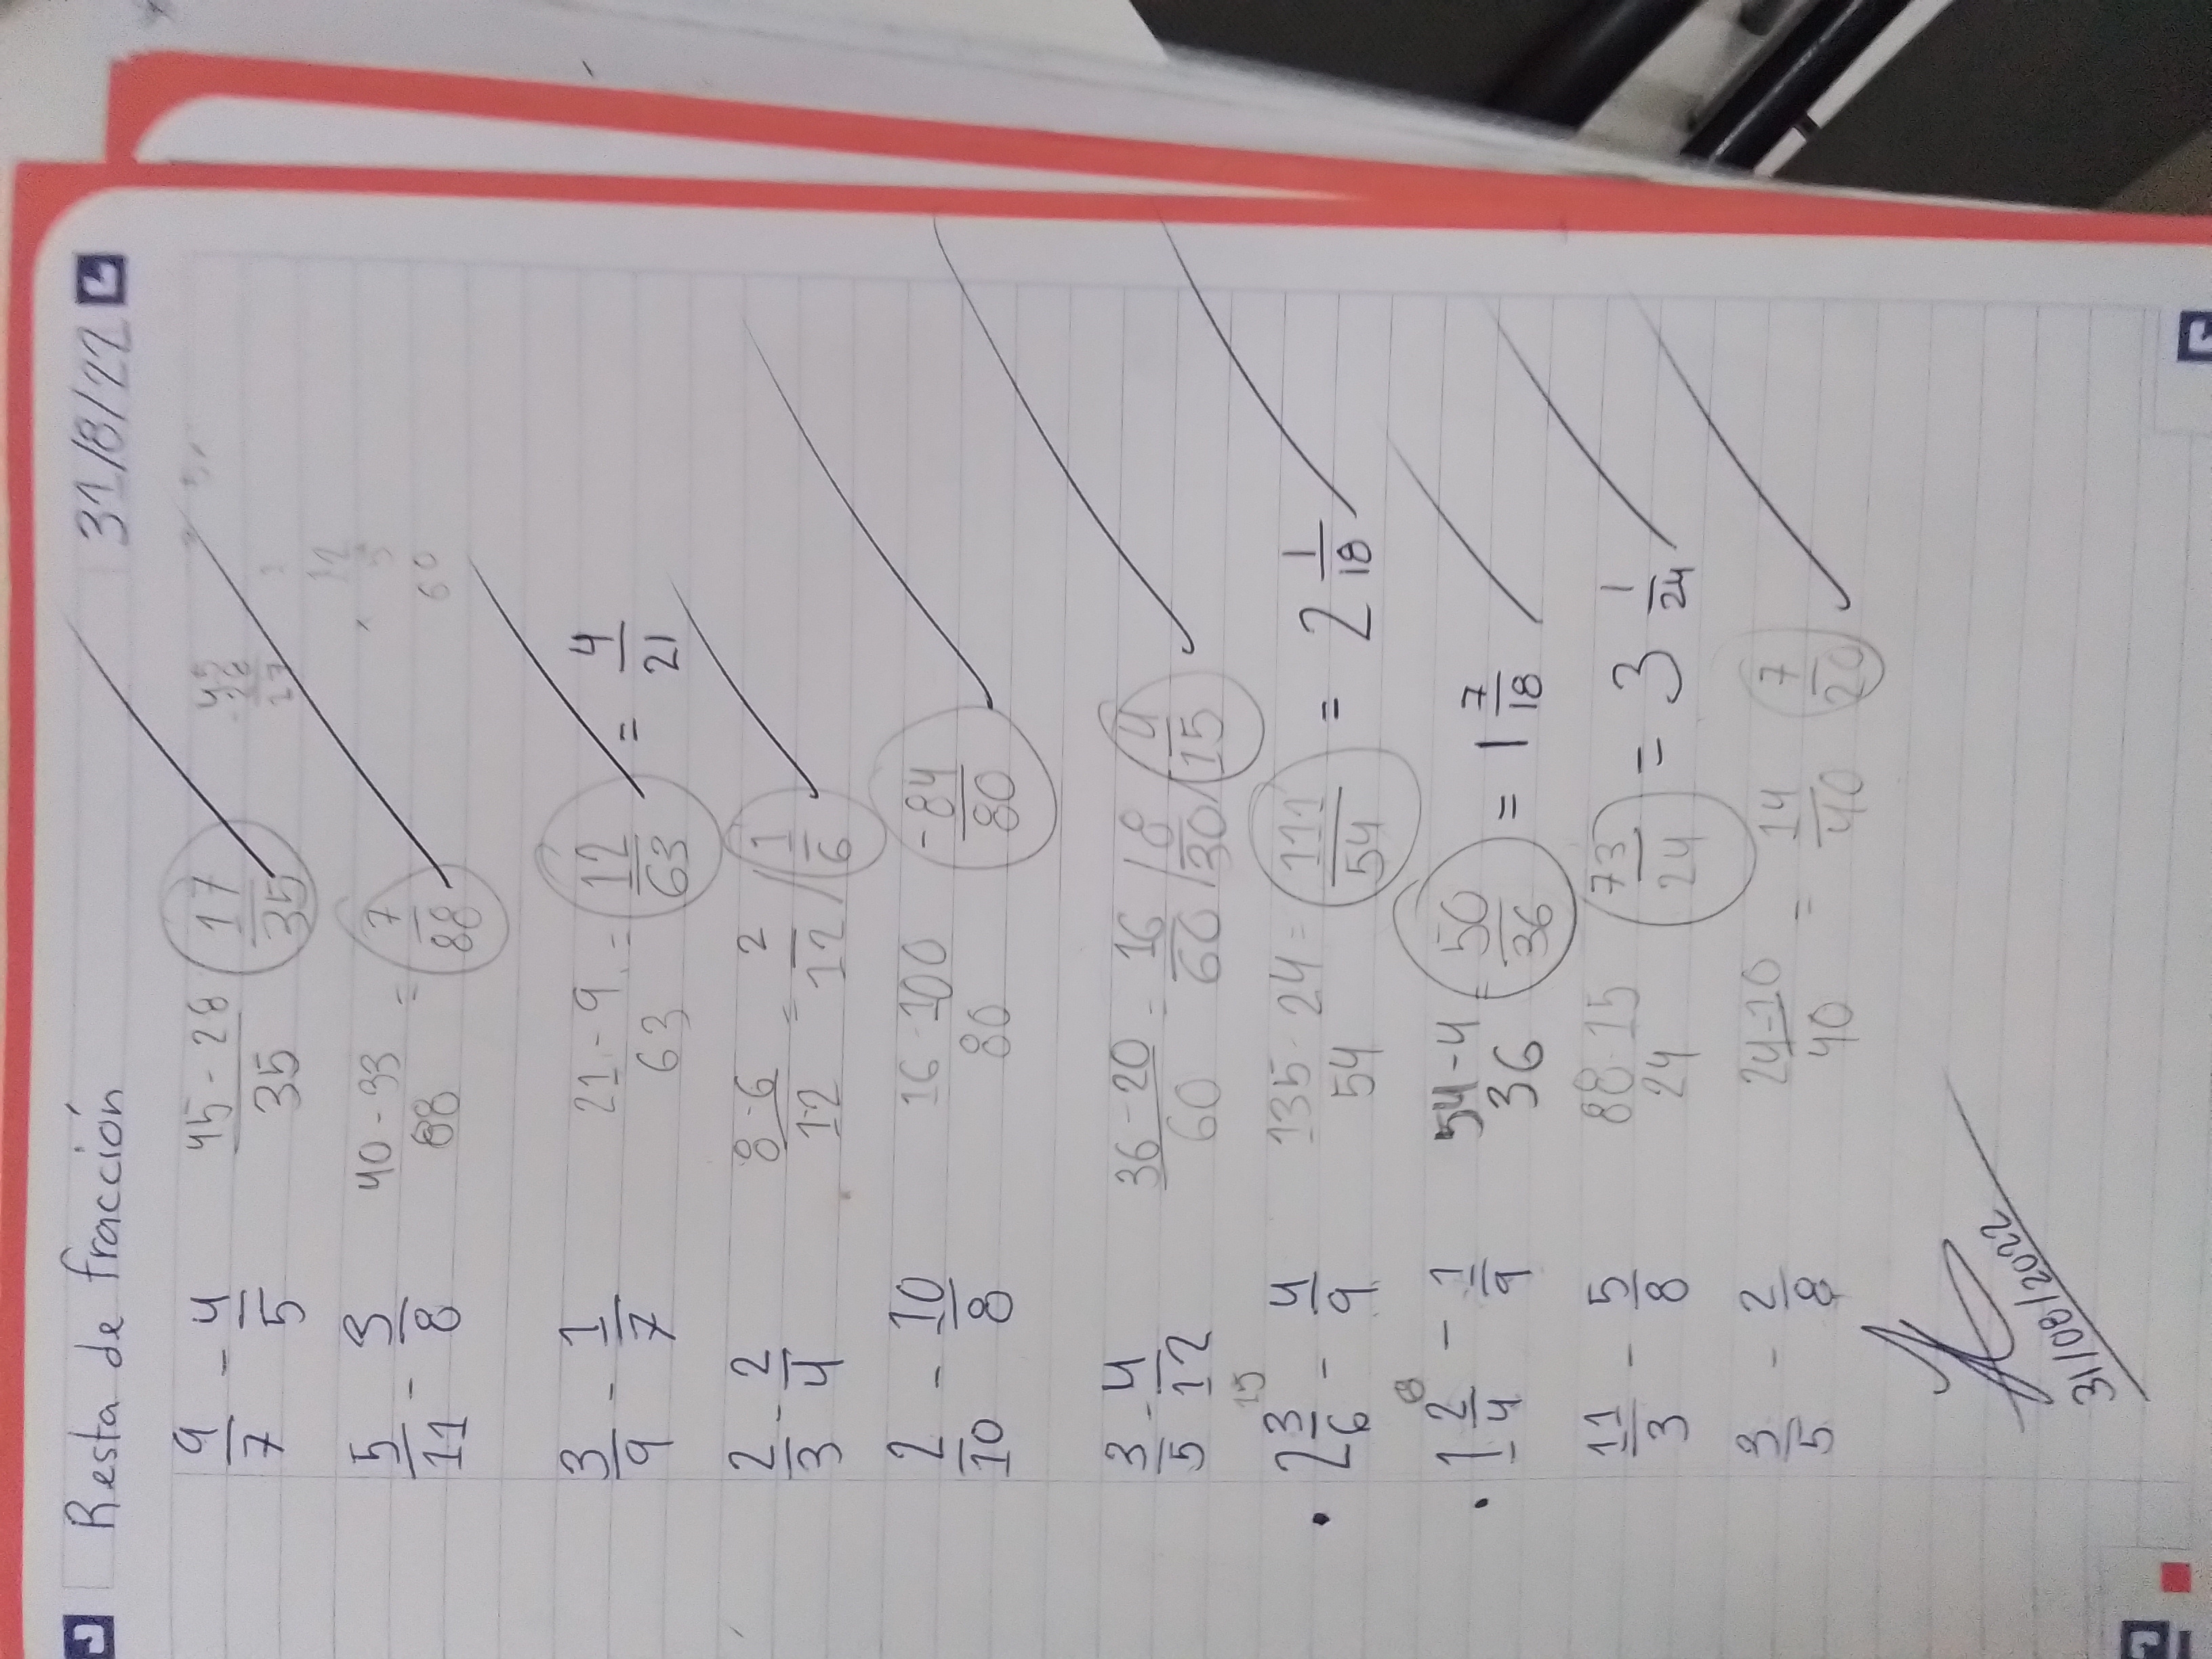 Resta de fracción 31/8/22
9/7 - 4/5 45-28/35 17/35
45
-28
17
5/11 - 3/8 40-33/88 = 7/88
12
× 5
60
3/9 - 1/7 21-9/63 = 12/63 = 4/21
2/3 - 2/4 8-6/12 = 2/12 / 1/6
2/10 - 10/8 16-100/80 -84/80
3/5 - 4/12 36-20/60 = 16/60 / 8/30 / 4/15
15
2 3/6 - 4/9 135-24/54 = 111/54 = 2 1/18
6
1 2/4 - 1/9 54-4/36 = 50/36 = 1 7/18
11/3 - 5/8 88-15/24 73/24 = 3 1/24
3/5 - 2/8 24-10/40 = 14/40 7/20
31/08/2022